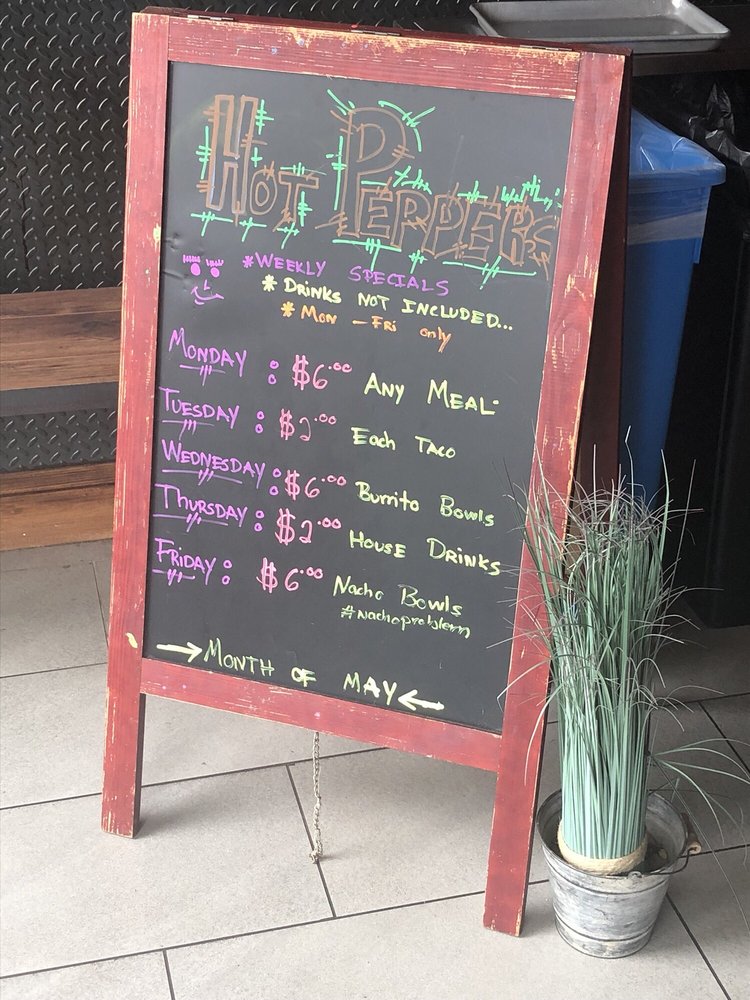 Hot Peppers
*Weekly Specials
*Drinks not included...
*Mon - Fri only
Monday : $6.00 Any Meal
Tuesday : $2.00 Each Taco
Wednesday : $6.00 Burrito Bowls
Thursday : $2.00 House Drinks
Friday : $6.00 Nacho Bowls
#nachoproblem
→ Month of May ←